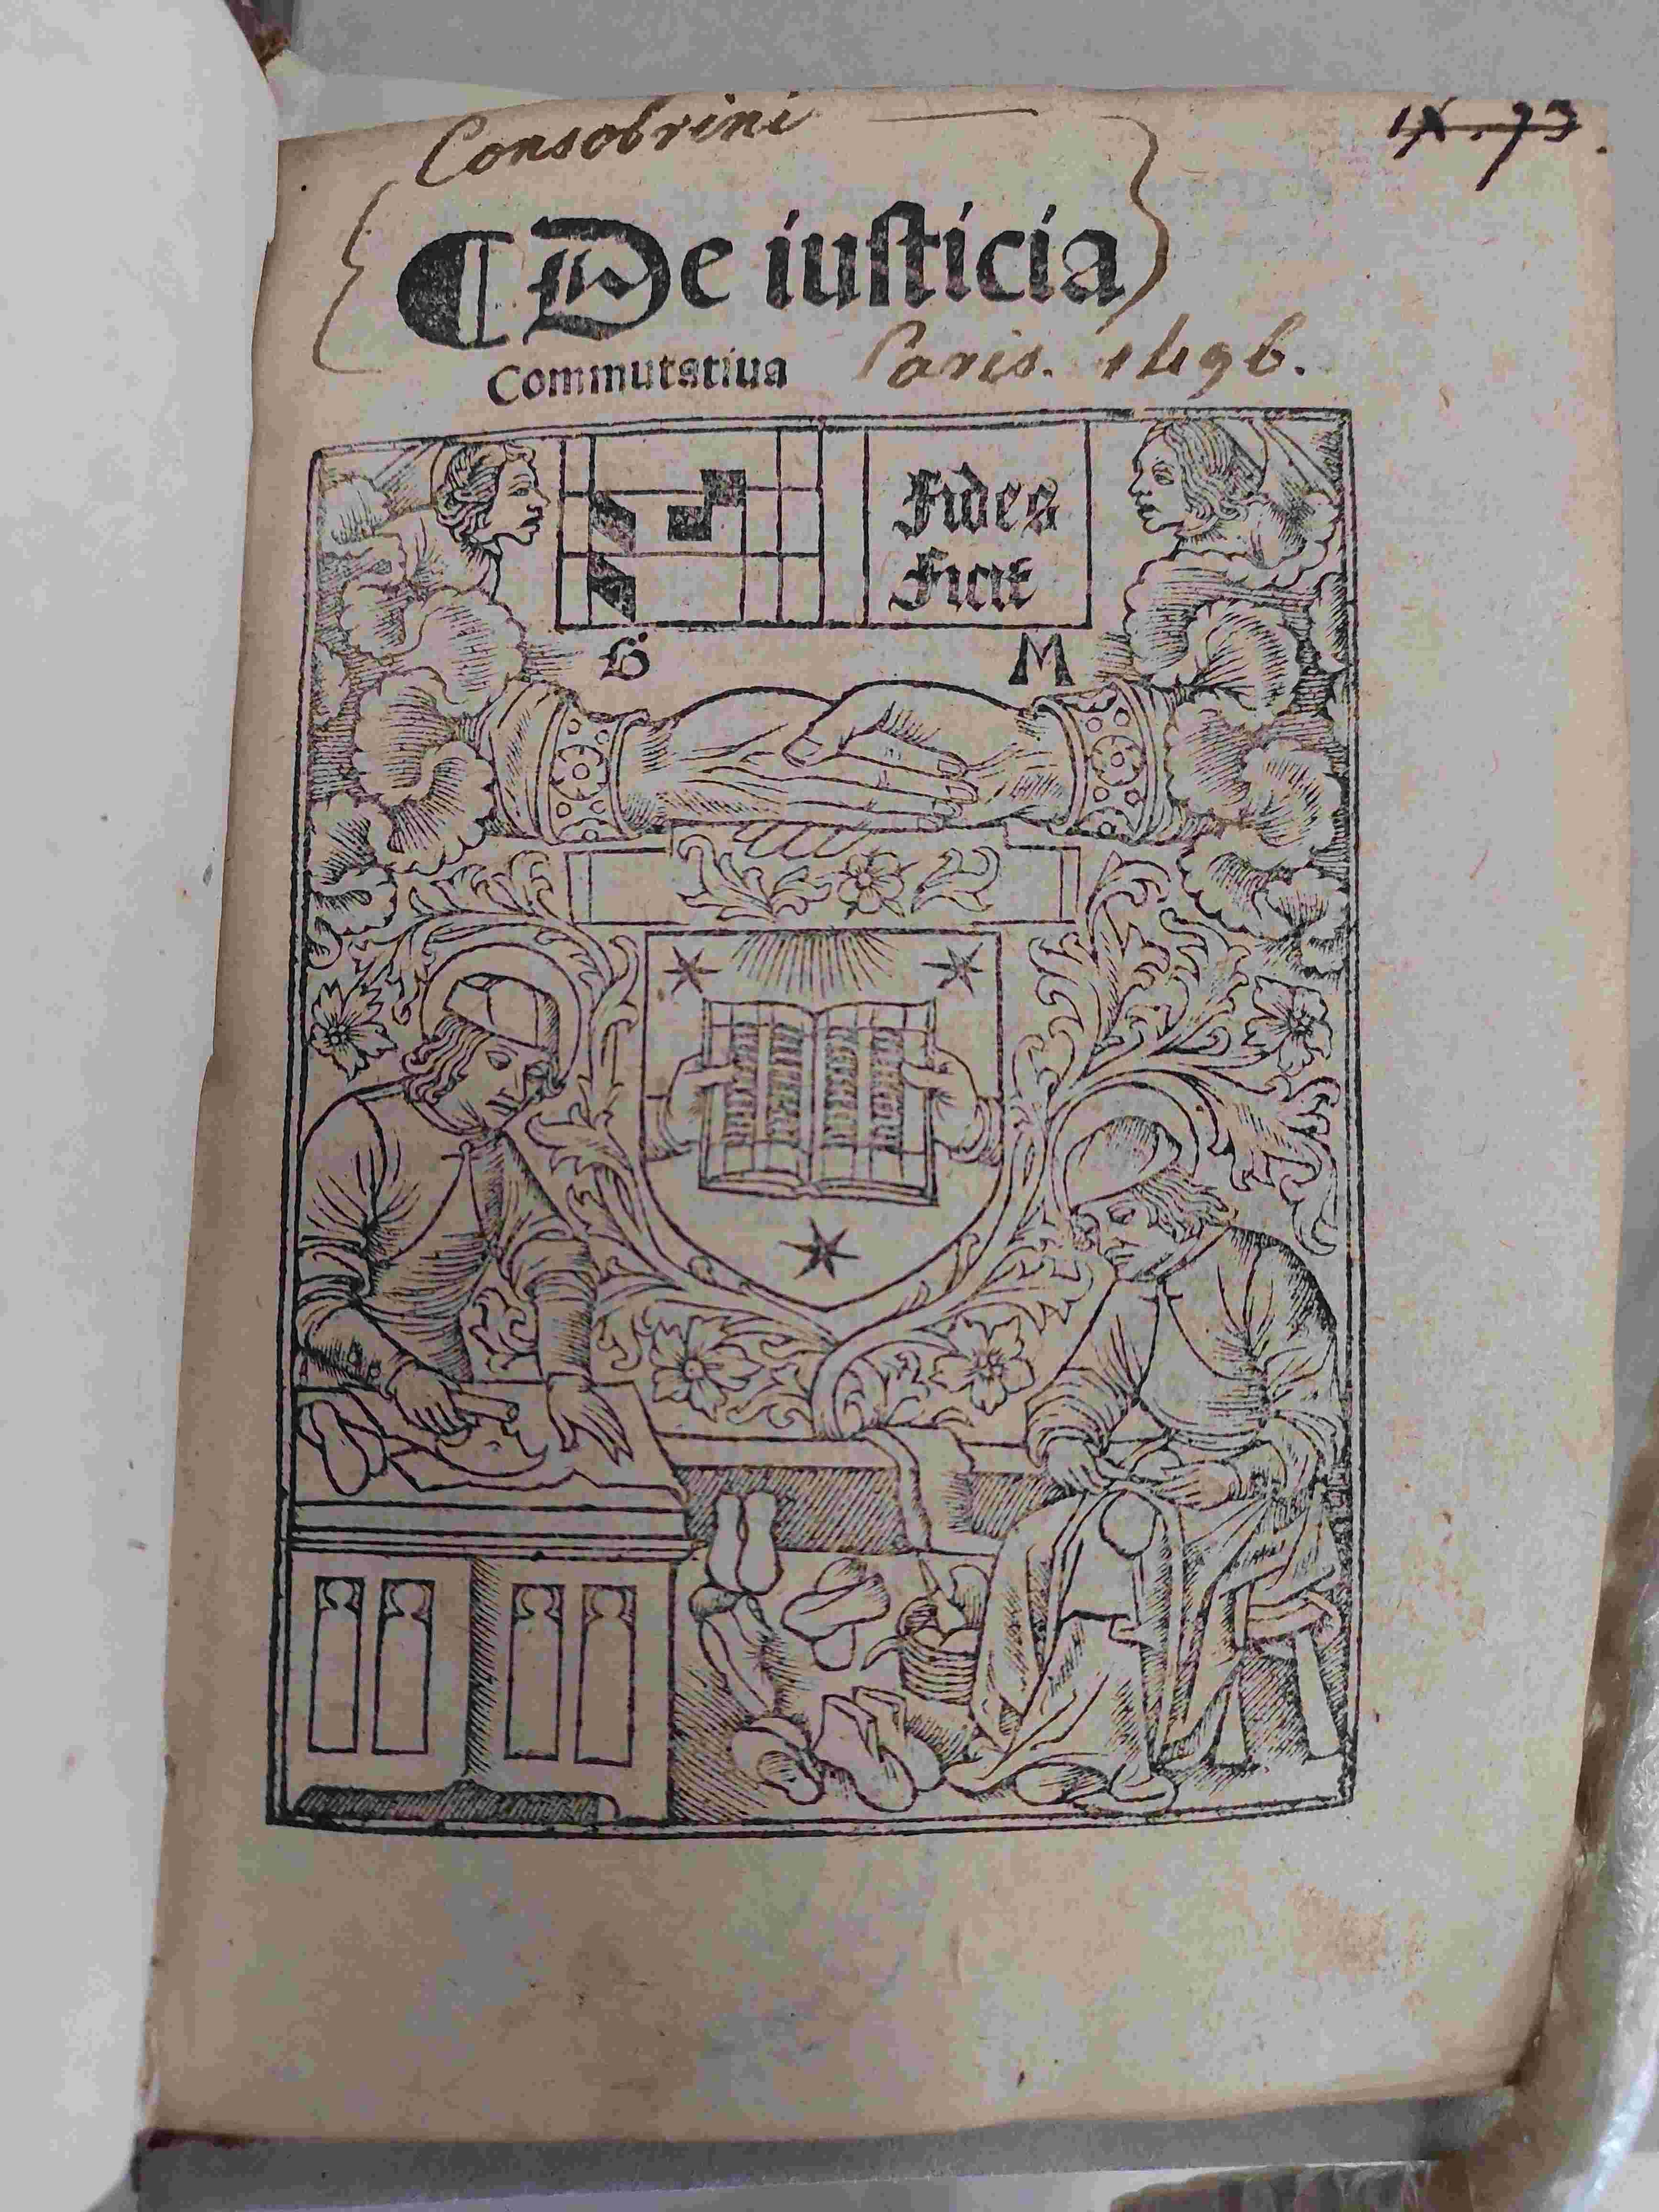 Consobrini
IX. 73.
De iusticia
Commutatiua
Paris. 1496.
Fides
Ficit
G M